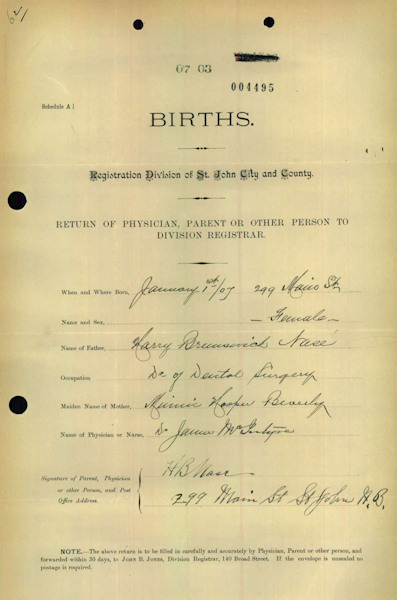 07 03
004495
Schedule A 1
BIRTHS.
Registration Division of St. John City and County.
RETURN OF PHYSICIAN, PARENT OR OTHER PERSON TO
DIVISION REGISTRAR.
When and Where Born, January 1st/07 299 Main St
Name and Sex, — Female —
Name of Father, Harry Brunswick Nase
Occupation Dr of Dental Surgery
Maiden Name of Mother, Minnie Hooper Beverly
Name of Physician or Nurse, Dr James McIntyre
Signature of Parent, Physician
or other Person, and Post
Office Address.
H B Nase
299 Main St St John N.B.
NOTE.—The above return is to be filled in carefully and accurately by Physician, Parent or other person, and
forwarded within 30 days, to JOHN B. JONES, Division Registrar, 140 Broad Street. If the envelope is unsealed no
postage is required.